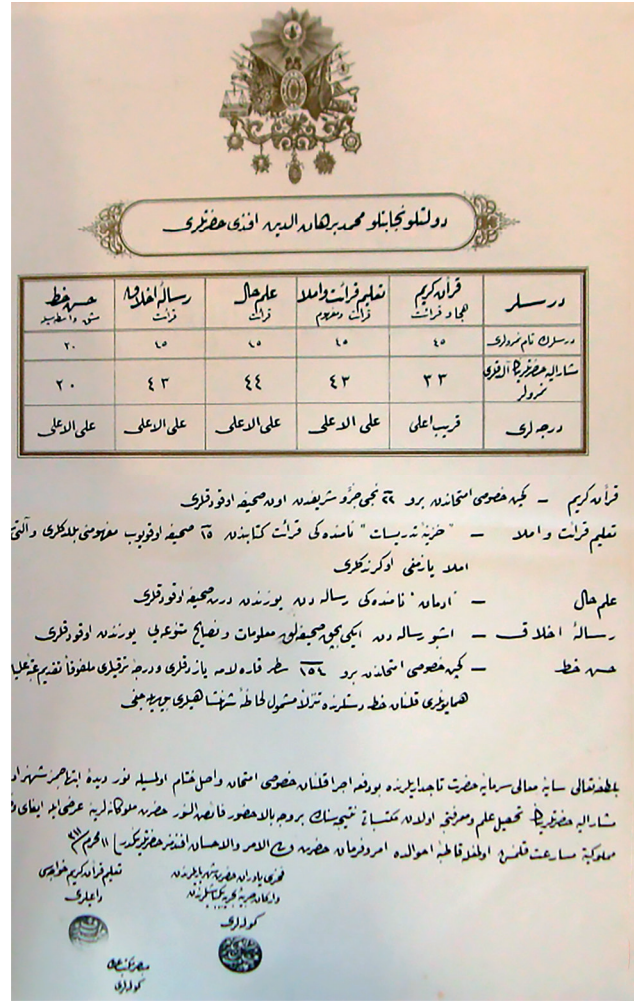 دولتلو نجابتلو محمد برهان الدين افندى حضرتلرى
درسلر قرآن كريم تعليم قرائت واملا علم حال رسالهٔ اخلاق حسن خط
هجا و قرائت قرائت و مفهوم قرائت قرائت مشق
درسلرك تام نمرولرى ٤٥ ٤٥ ٤٥ ٤٥ ٢٠
مشاراليه حضرتلرينك آلدقلرى نمرولر ٣٣ ٤٣ ٤٤ ٤٣ ٢٠
درجه لرى قريب اعلى على الاعلى على الاعلى على الاعلى على الاعلى
قرآن كريم - كچن خصوصى امتحاندن برو ٢٢ نجى جزؤ شريفدن اون صحيفه اوقودقلرى
تعليم قرائت و املا - "خزينهٔ تدريسات" نامنده كى قرائت كتابندن ١٥ صحيفه اوقويوب مفهومنى بلدكلرى و آلتى
املا يازمغى اوكرندكلرى
علم حال - نامنده كى رساله دن يوزندن درت صحيفه اوقودقلرى
رسالهٔ اخلاق - اشبو رساله دن ايكى بچق صحيفه لق معلومات و نصايح متنوعه يى يوزندن اوقودقلرى
حسن خط - كچن خصوصى امتحاندن برو ١٥٤ سطر قره لامه يازدقلرى و درجهٔ ترقيلرى ملفوفاً تقديم
همايونلرى قلنان خط دستلرنده تنزلاً مشمول لحاظهٔ شهنشاهيلرى
بلطفه تعالى سايهٔ معالى سرمايهٔ حضرت تاجداريلرنده بو دفعه اجرا قلنان خصوصى امتحان واصل ختام اولمسيله نور ديدهٔ ابتهاجمز شهزاده
مشاراليه حضرتلرينك تحصيل علم و معرفتى اولان نتيجه سنك بروجه بالا حضور فائض النور حضرت ملوكانه لرينه عرضى ايله ايفاى
مملوكيته مسارعت قلنمش اولمغله قاطبهٔ احوالده امر و فرمان حضرت ولى الامر والاحسان افندمز حضرتلرينكدر ١١ محرم ٣١١
فخرى ياوران حضرت شهريارلرندن
كوله لرى
تعليم قرآن كريم خواجه سى
داعيلرى
كوله لرى